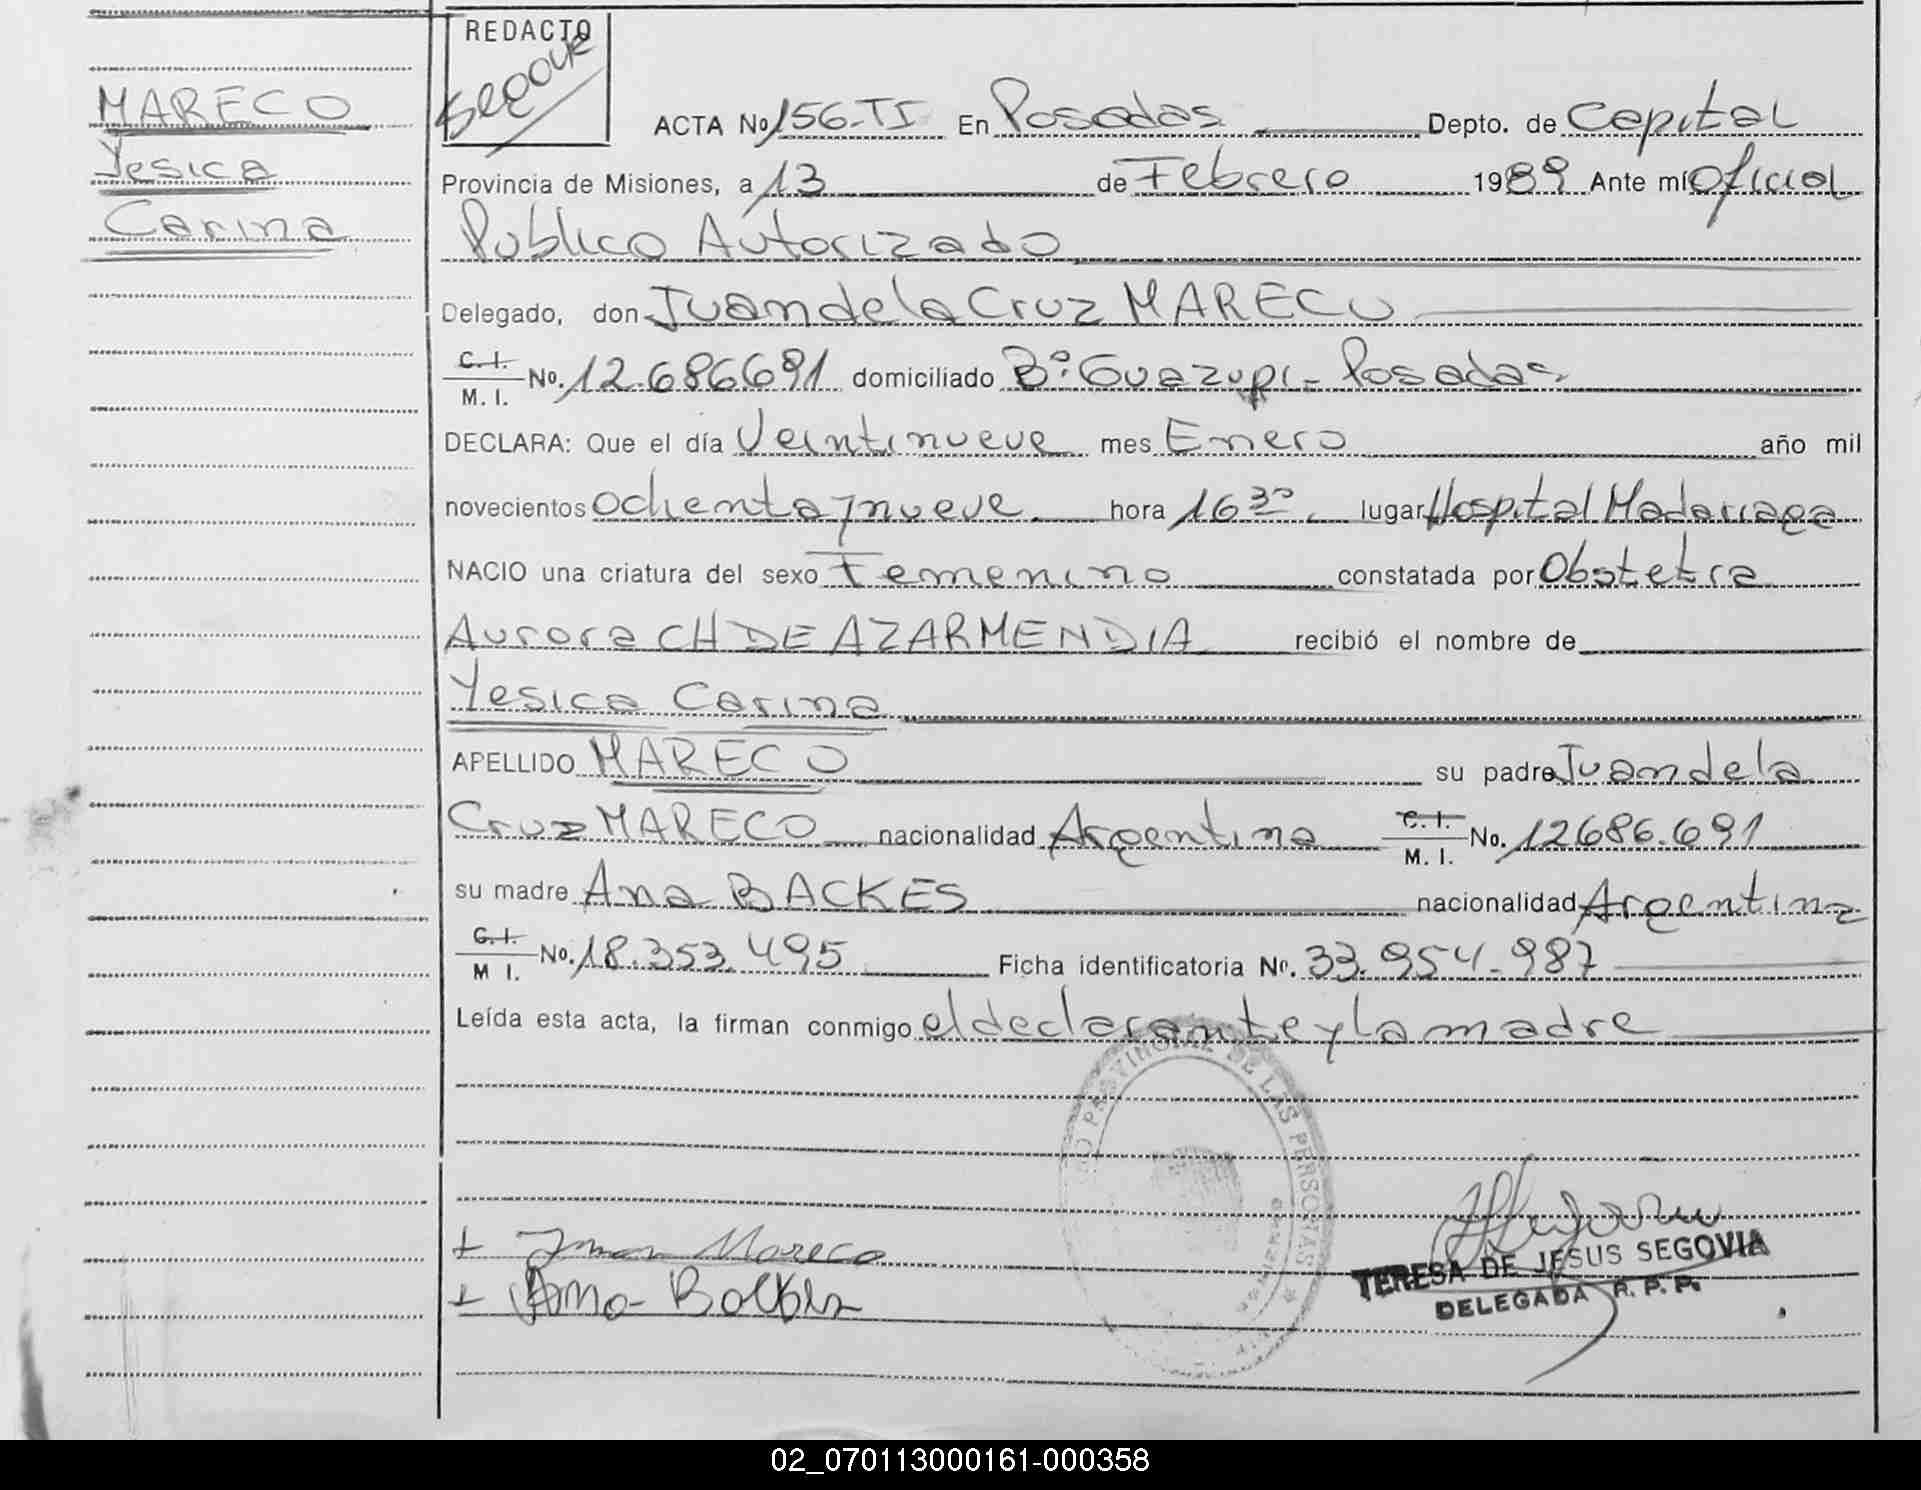 MARECO
Yesica
Carina
REDACTO
Segovia
ACTA No 156-TI En Posadas Depto. de Capital
Provincia de Misiones, a 13 de Febrero 1989 Ante mí Oficial
Publico Autorizado
Delegado, don Juan de la Cruz MARECO
C. I.
M. I. No. 12.686691 domiciliado Bº: Guazupi - Posadas
DECLARA: Que el día Veintinueve mes Enero año mil
novecientos ochenta y nueve hora 16 30 lugar Hospital Madariaga
NACIO una criatura del sexo Femenino constatada por Obstetra
Aurora CH DE AZARMENDIA recibió el nombre de
Yesica Carina
APELLIDO MARECO su padre Juan de la
Cruz MARECO nacionalidad Argentina C. I. M. I. No. 12686.691
su madre Ana BACKES nacionalidad Argentina
C. I.
M I. No. 18.353.495 Ficha identificatoria No. 33.954-987
Leída esta acta, la firman conmigo el declarante y la madre
PROVINCIAL DE LAS PERSONAS
+ Juan Mareco
+ Ana
TERESA DE JESUS SEGOVIA
DELEGADA R. P. P.
02_070113000161-000358